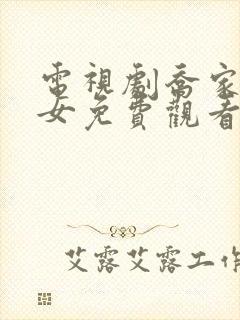 電視劇喬家
女免費觀看
艾露艾露工作